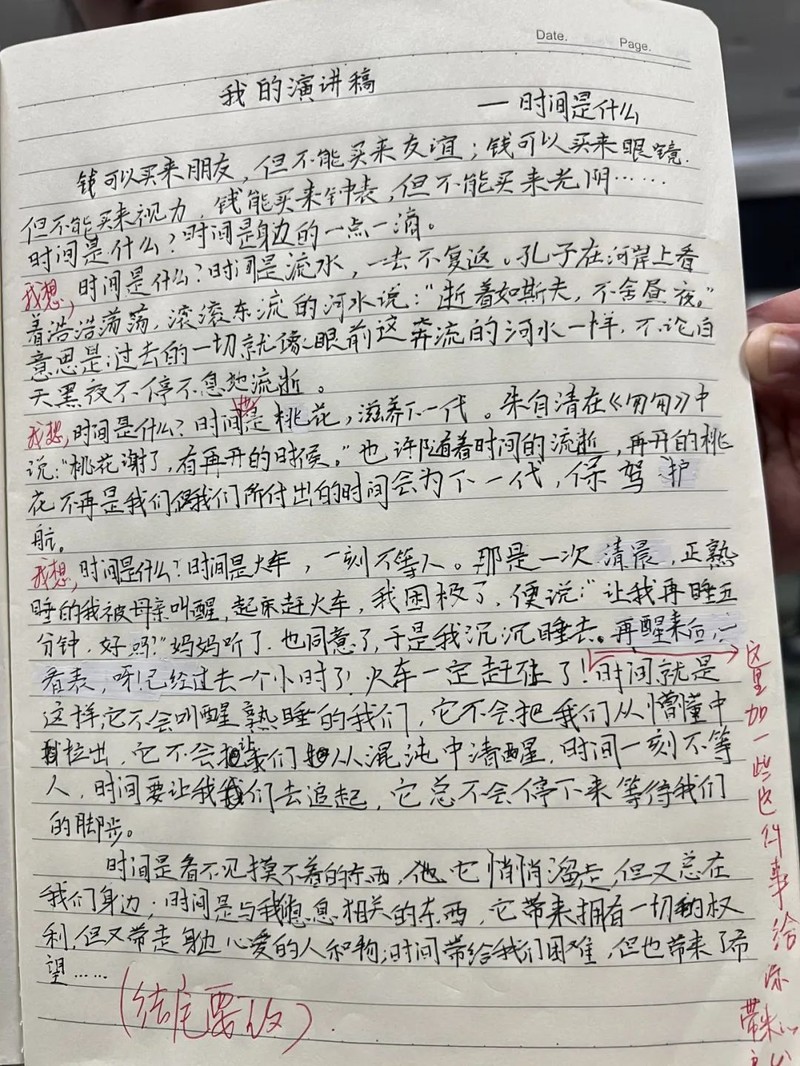 Date.
Page.
我的演讲稿
— 时间是什么
钱可以买来朋友，但不能买来友谊；钱可以买来眼镜.
但不能买来视力，钱能买来钟表，但不能买来光阴……
时间是什么？时间是身边的一点一滴。
我想，时间是什么？时间是流水，一去不复返。孔子在河岸上看
着浩浩荡荡，滚滚东流的河水说："逝着如斯夫，不舍昼夜。"
意思是：过去的一切就像眼前这奔流的河水一样，不论白
天黑夜不停不息地流逝。
我想，时间是什么？时间是桃花，滋养下一代。朱自清在《匆匆》中
说："桃花谢了，有再开的时候。"也许随着时间的流逝，再开的桃
花不再是我们，但我们所付出的时间会为下一代，保驾护
航。
我想，时间是什么？时间是火车，一刻不等人。那是一次清晨，正熟
睡的我被母亲叫醒，起床赶火车，我困极了，便说："让我再睡五
分钟，好吗？"妈妈听了，也同意了，于是我沉沉睡去。再醒来后，一
看表，呀！已经过去一个小时了！火车一定赶不上了！时间就是
这样，它不会叫醒熟睡的我们，它不会把我们从懵懂中
拉出，它不会让我们从混沌中清醒，时间一刻不等
人，时间要让我们去追起，它总不会停下来等待我们
的脚步。
时间是看不见摸不着的东西，它悄悄溜走，但又总在
我们身边；时间是与我息息相关的东西，它带来拥有一切的权
利，但又带走身边心爱的人和物；时间带给我们困难，但也带来了希
望……
（结尾要改）
这里加一些这件事给你带来的